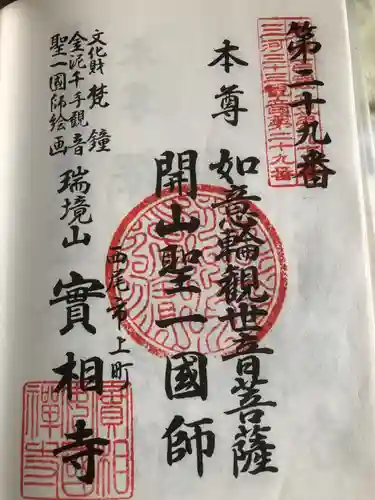 第二十九番
三河三十三観音第二十九番
本尊 如意輪観世音菩薩
開山聖一國師
西尾市上町
瑞境山 實相寺
文化財 梵鐘
金泥千手観音
聖一國師絵画
實相
禅寺